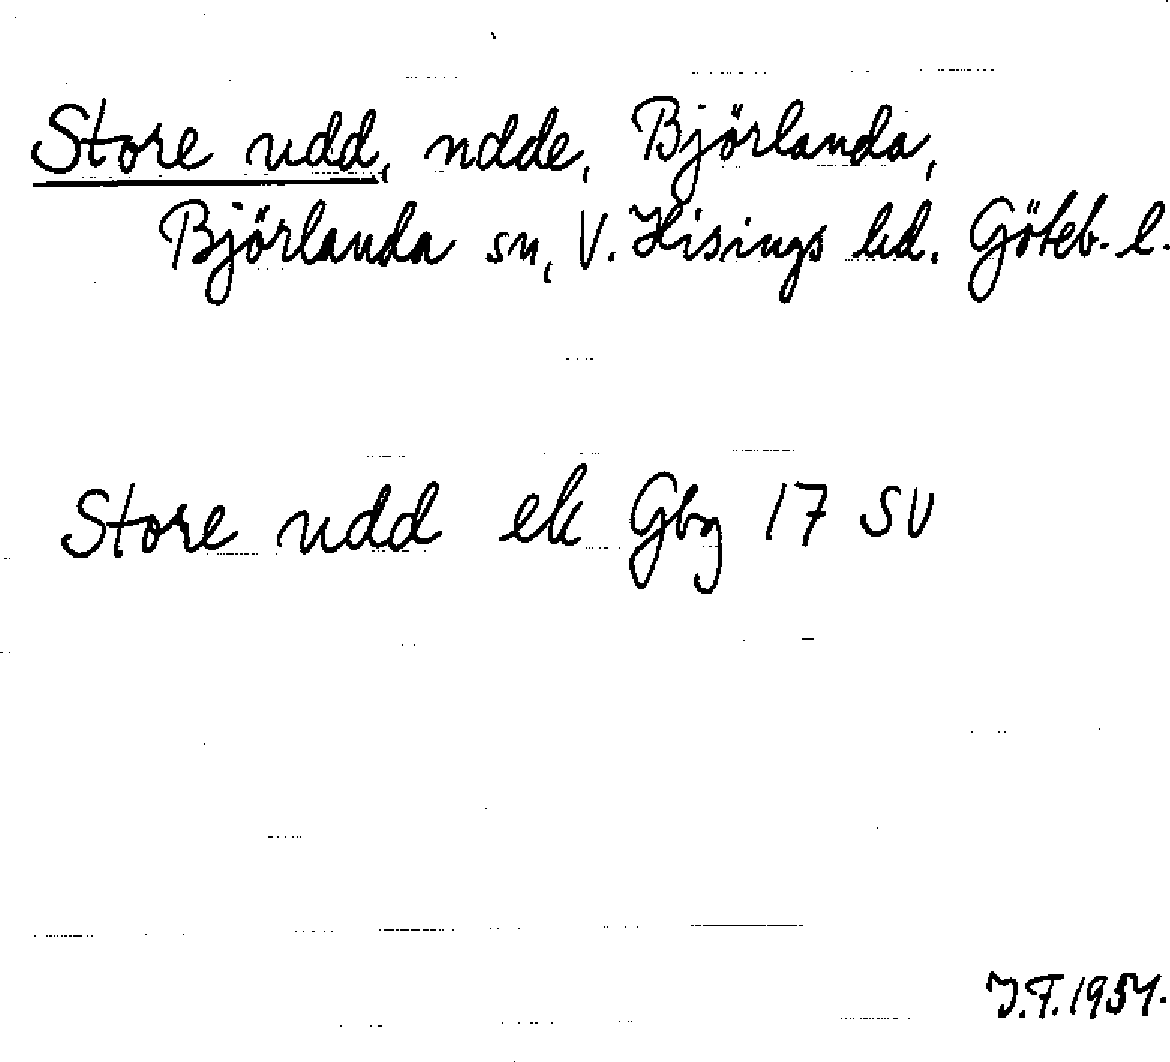 Store udd, udde, Björlanda,
Björlanda sn, V. Hisings hd. Göteb. l.
Store udd ek Gbg 17 SV
I.F. 1954.